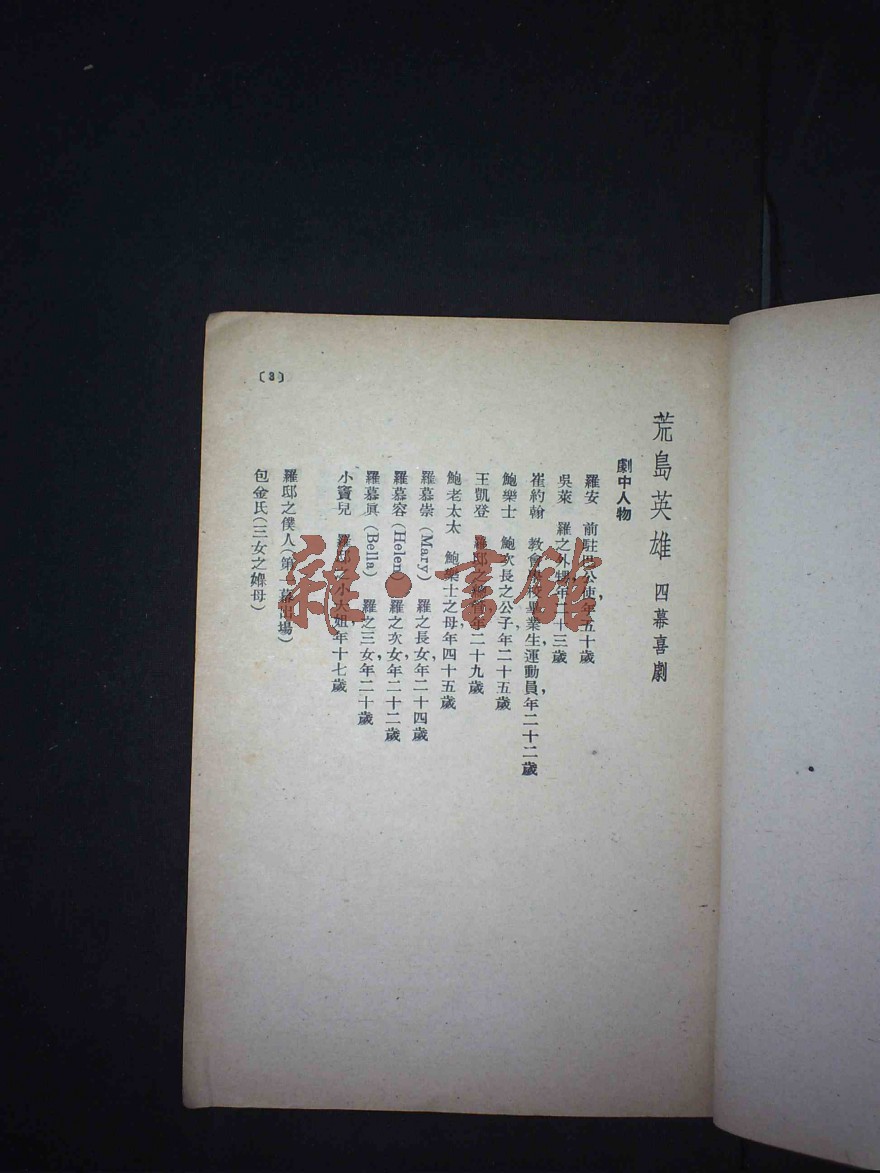 荒島英雄 四幕喜劇
劇中人物
羅安 前駐 公使,年五十歲
吳萊 羅之外甥年二十三歲
崔約翰 教會 校畢業生運動員,年二十二歲
鮑樂士 鮑次長之公子年二十五歲
王凱登 羅邸之 年二十九歲
鮑老太太 鮑樂士之母年四十五歲
羅慕崇(Mary) 羅之長女年二十四歲
羅慕容(Helen) 羅之次女,年二十二歲
羅慕眞(Bella) 羅之三女年二十歲
小寶兒 羅邸之小大姐,年十七歲
羅邸之僕人(第一幕出場)
包金氏(三女之褓母)
(3)
雜·書館